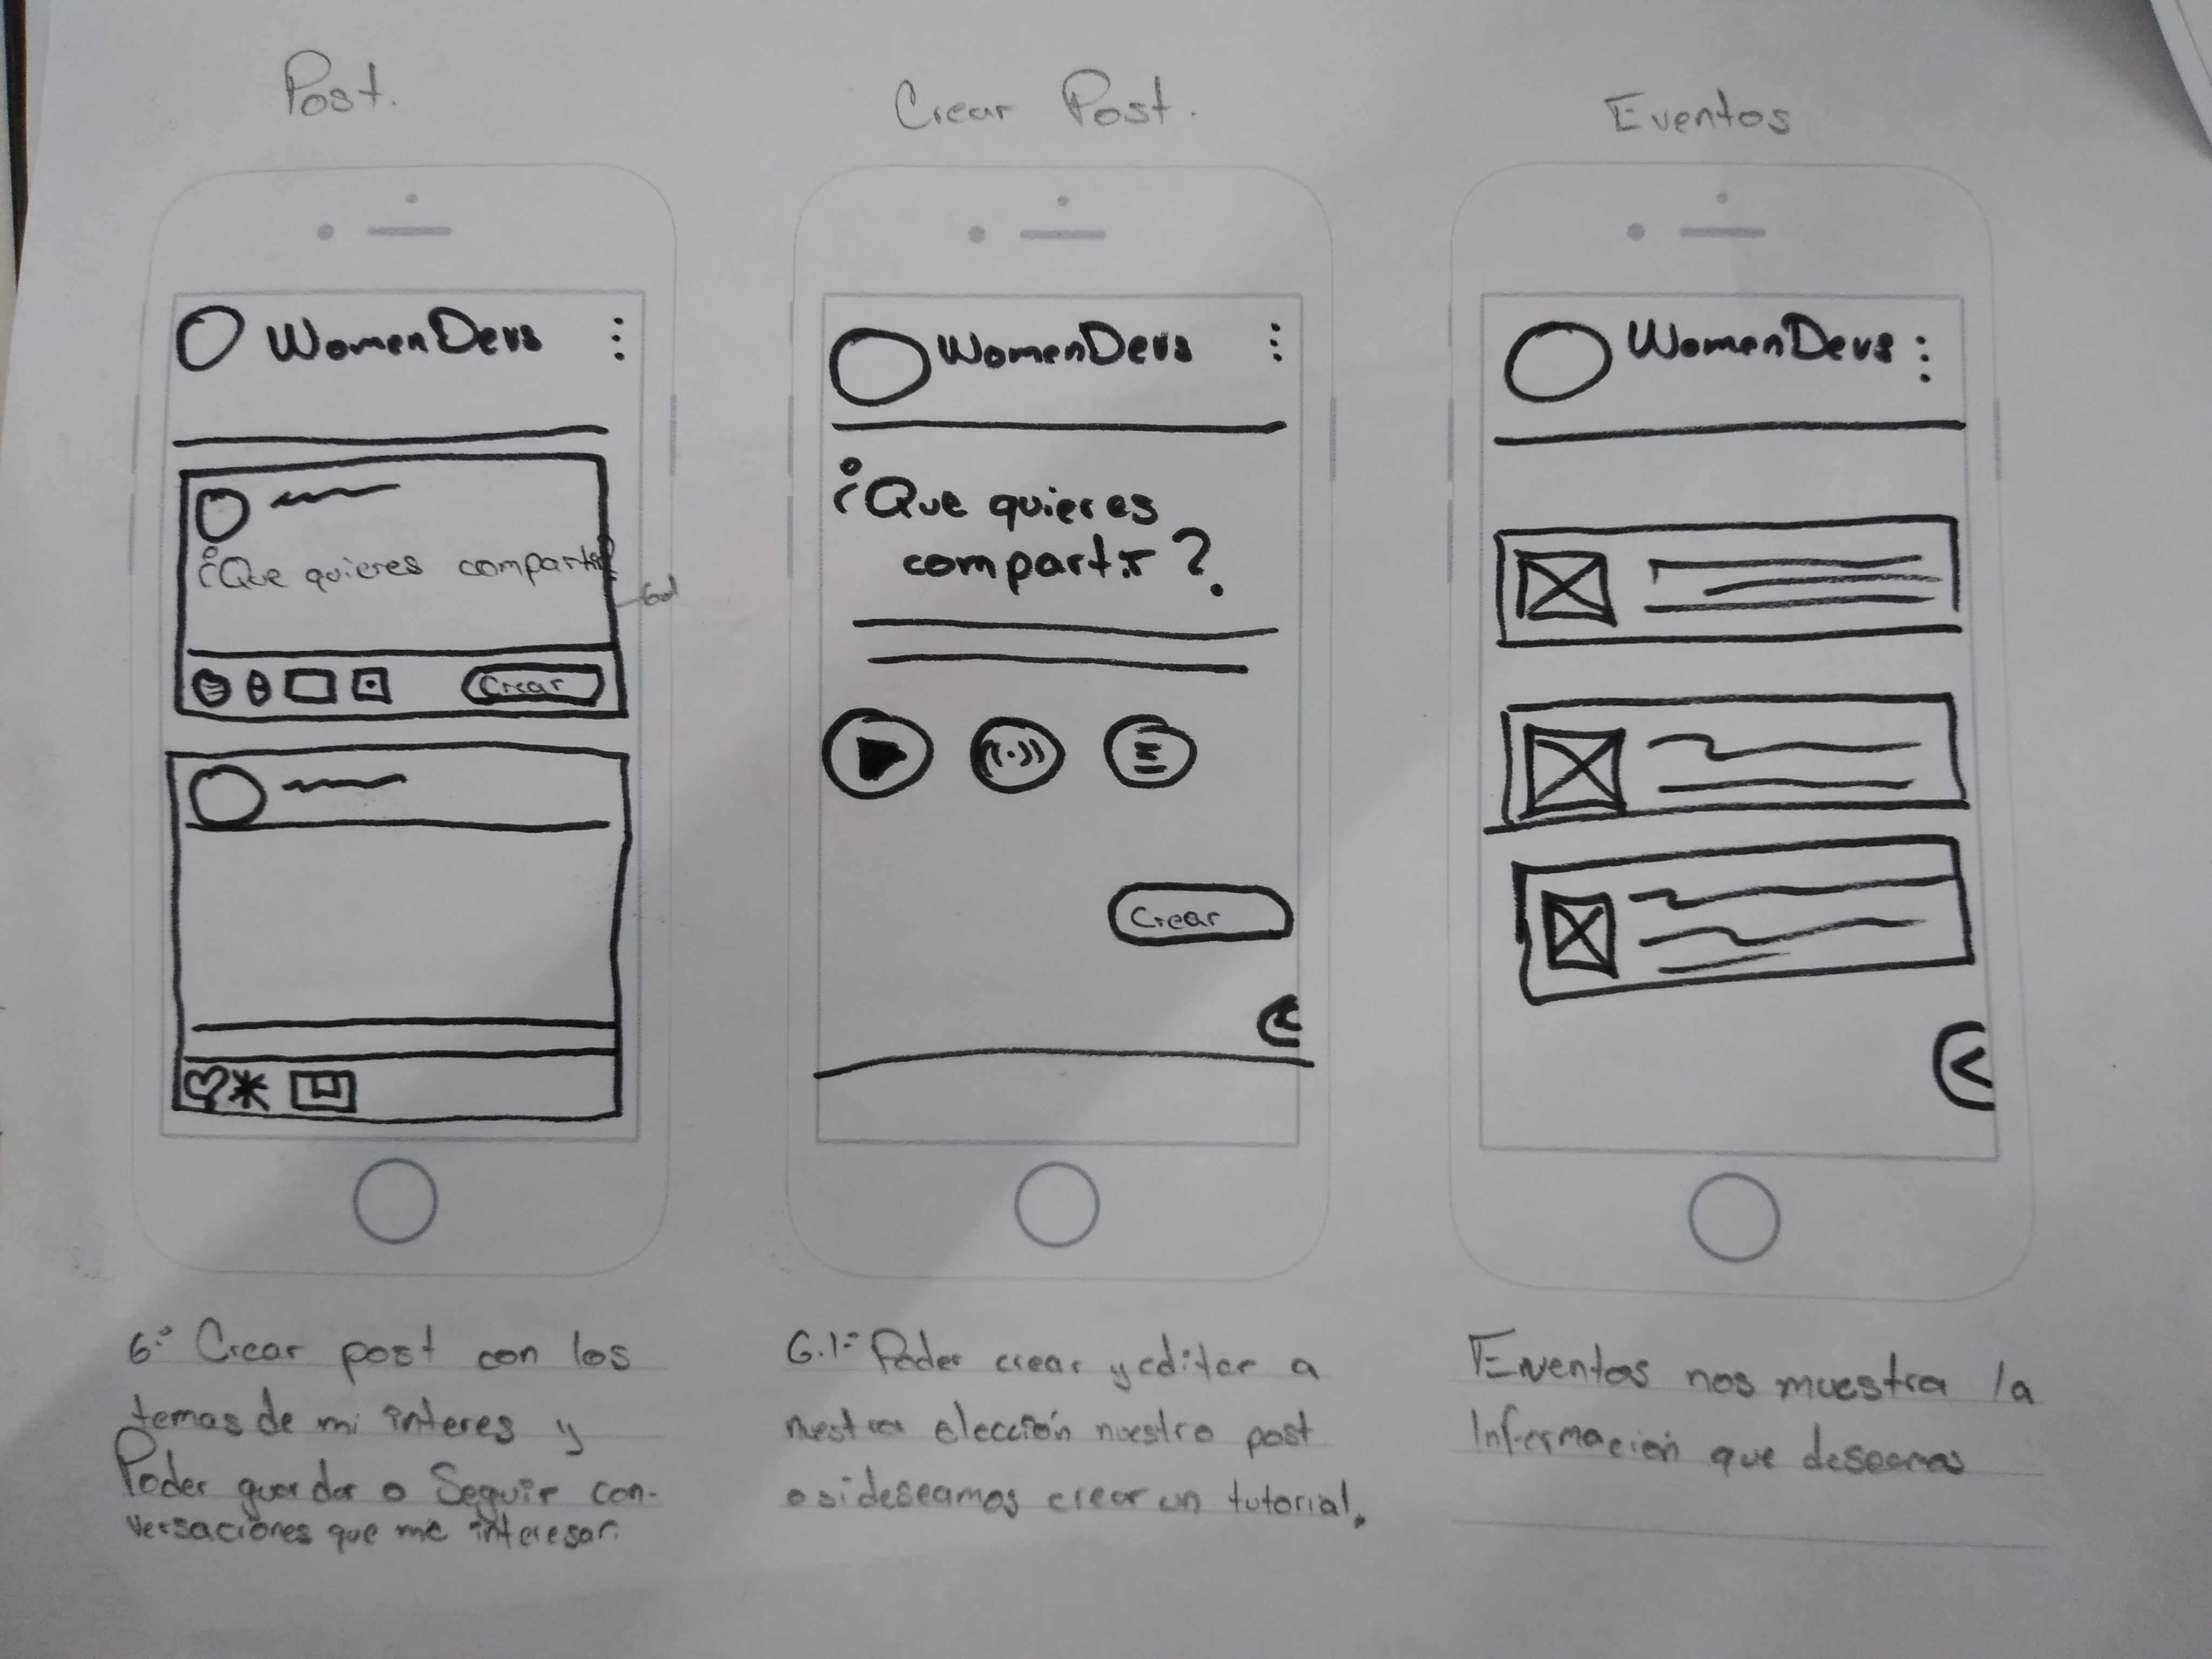 Post.
WomenDevs
¿Que quieres compartir?
Crear
6: Crear post con los
temas de mi interes y
Poder guardar o Seguir con-
versaciones que me interesar.
Crear Post.
WomenDevs
¿Que quieres
compartir?
Crear
6.1: Poder crear y editar a
nuestra elección nuestro post
o si deseamos crear un tutorial.
Eventos
WomenDevs
Eventos nos muestra la
Información que deseamos